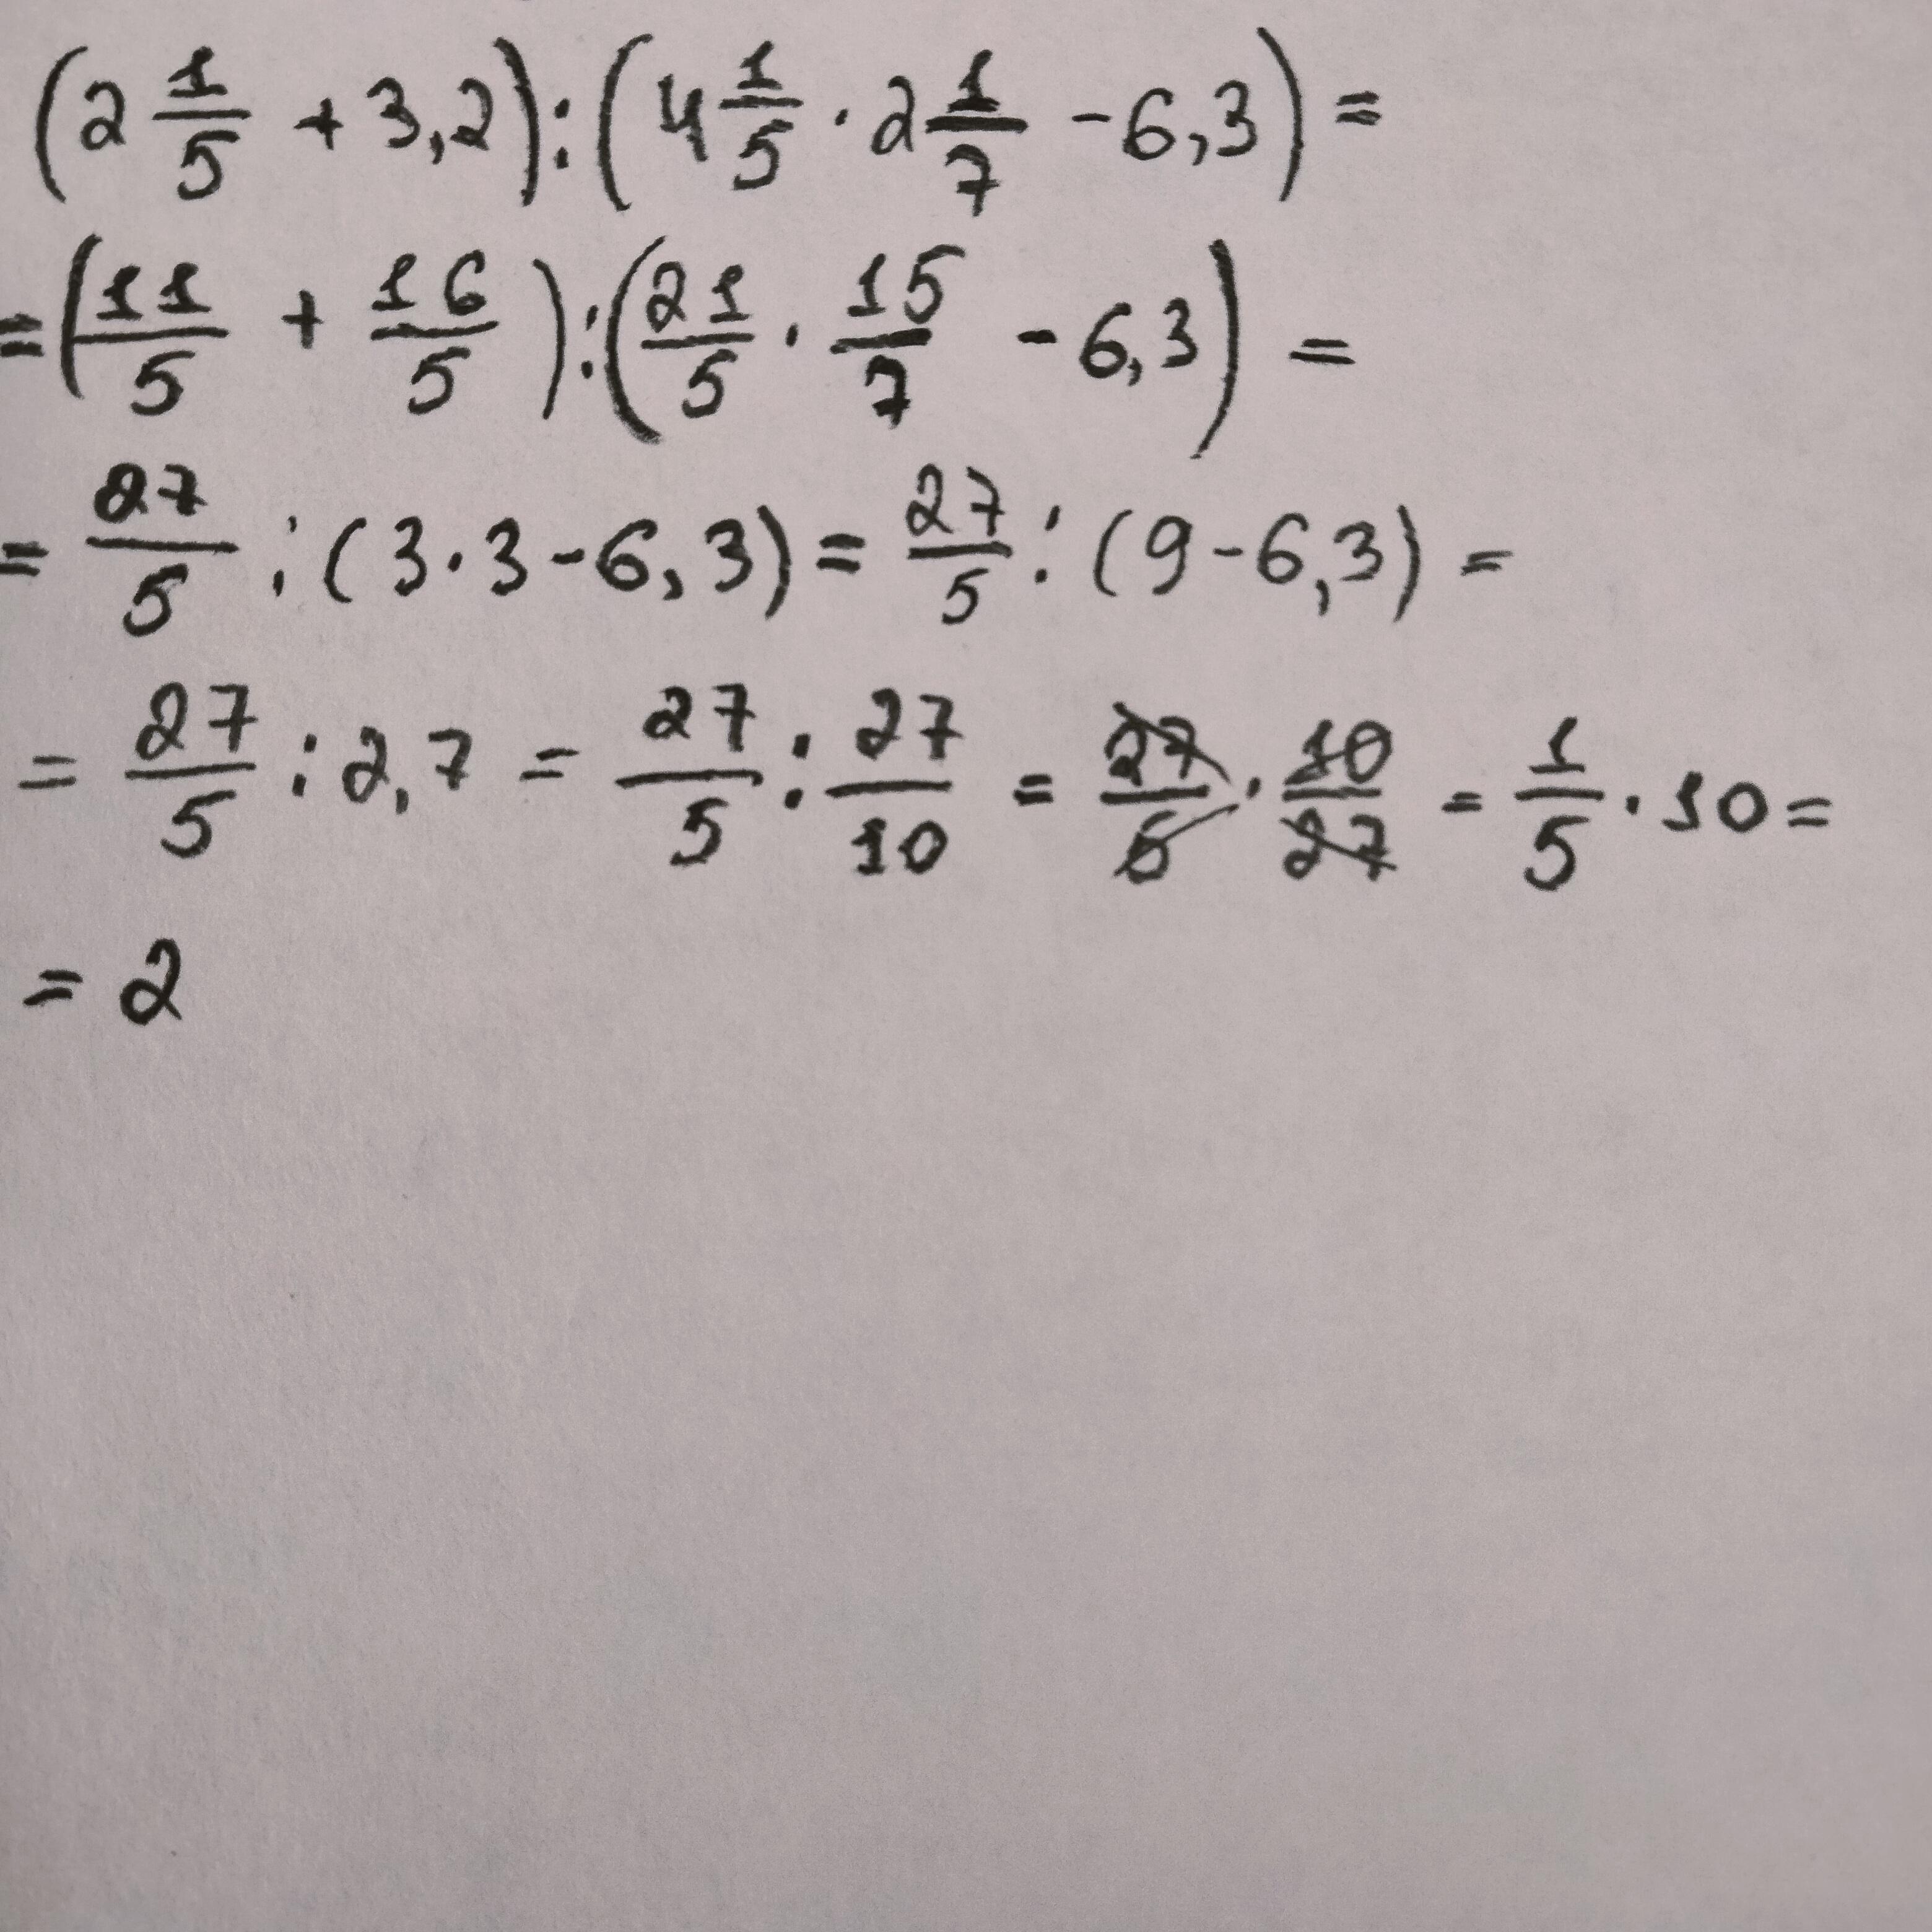 (2 1/5 + 3,2) : (4 1/5 · 2 1/7 - 6,3) =
= (11/5 + 16/5) : (21/5 · 15/7 - 6,3) =
= 27/5 : (3 · 3 - 6,3) = 27/5 : (9 - 6,3) =
= 27/5 : 2,7 = 27/5 : 27/10 = 27/5 · 10/27 = 1/5 · 10 =
= 2